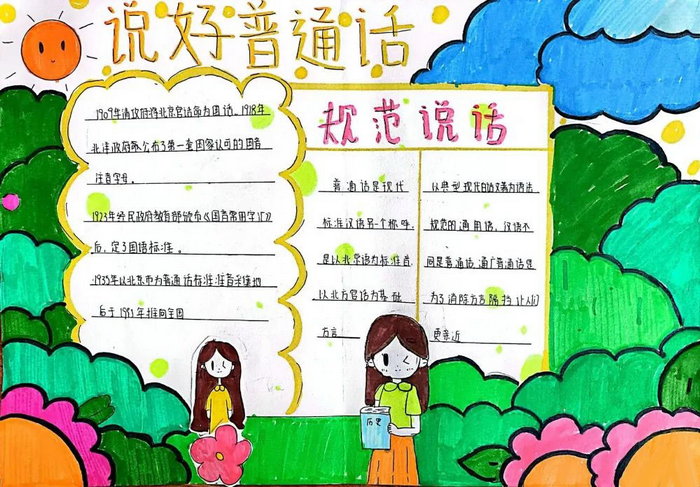 说好普通话
1909年清政府将北京官话命为国语,1918年
北洋政府公布了第一套国家认可的国音
注音字母。
1923年 民政府教育部颁布《国音常用字汇》
后,定了国语标准。
1955年以北京市为普通话标准音采集地
后于1951年推向全国
规范说话
普通话是现代
标准汉语另一个称呼,
是以北京语为标准音
以北方官话为基础
方言
以典型现代白话文为语法
规范的通用语,汉语不
同是普通话,通广普通话是
为了消除方言隔挡让人们
更亲近
历史